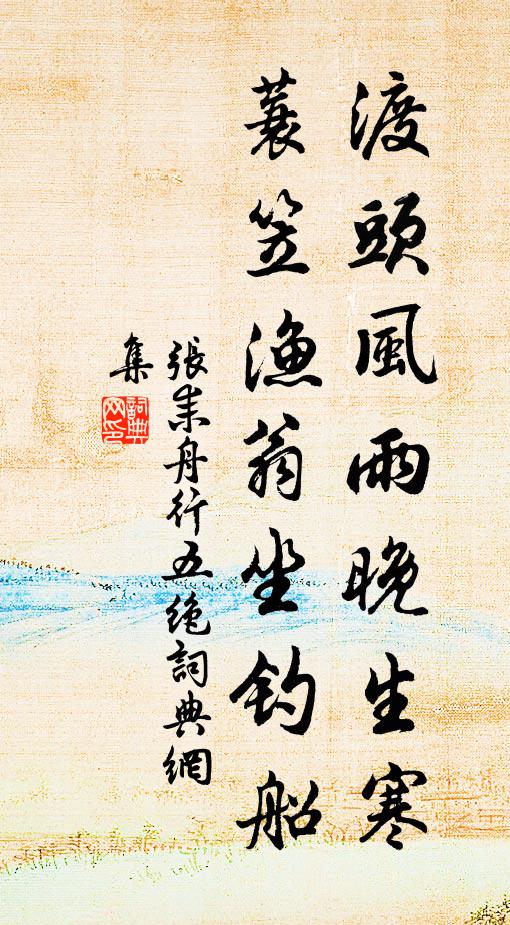 渡頭風雨晚生寒
蓑笠漁翁坐釣船
張耒舟行五絕詞典網
集
詞典网印